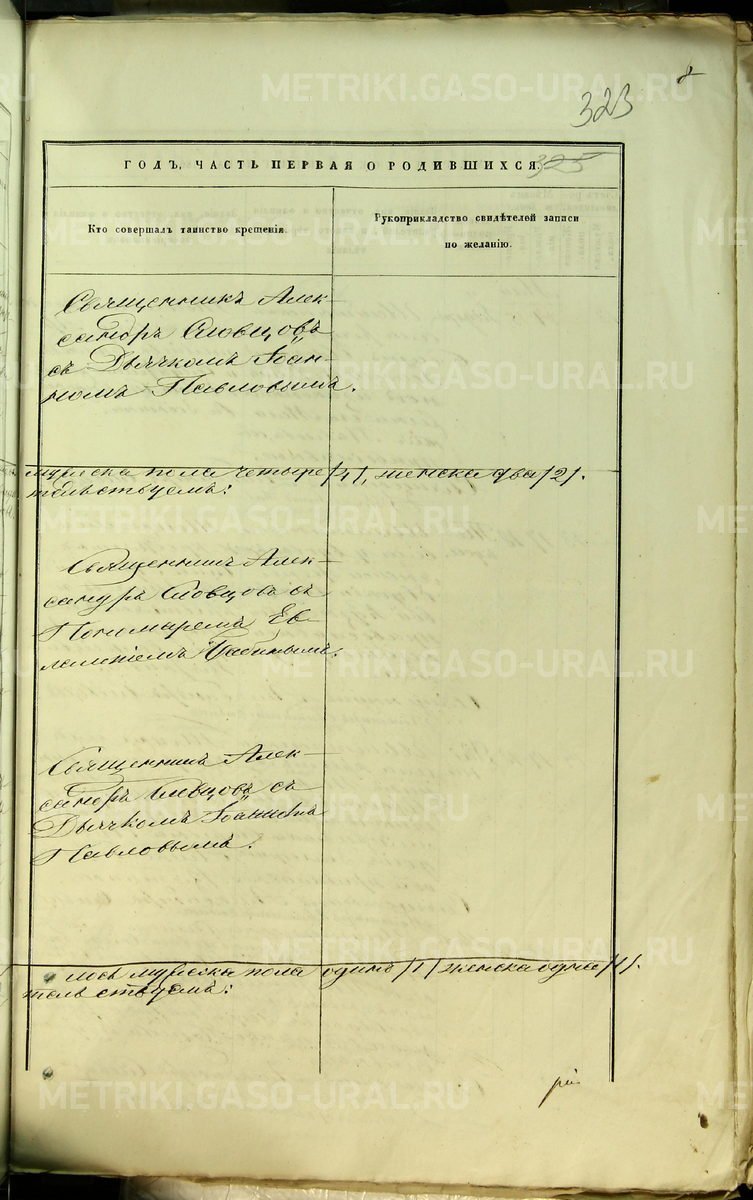 8
323
325
ГОДЪ, ЧАСТЬ ПЕРВАЯ О РОДИВШИХСЯ.
Кто совершалъ таинство крещенія.
Рукоприкладство свидѣтелей записи
по желанію.
Священникъ Алек-
сандръ Словцовъ
съ Дьячкомъ Іоан-
номъ Павловымъ.
мужеска пола четыре /4/, женска два /2/.
тельствуемъ:
Священникъ Алек-
сандръ Словцовъ съ
Пономаремъ Ев-
Священникъ Алек-
сандръ Словцовъ съ
Дьячкомъ Іоанномъ
Павловымъ.
лось мужеска пола одинъ /1/ женска одна /1/.
тельствуемъ:
METRIKI.GASO-URAL.RU